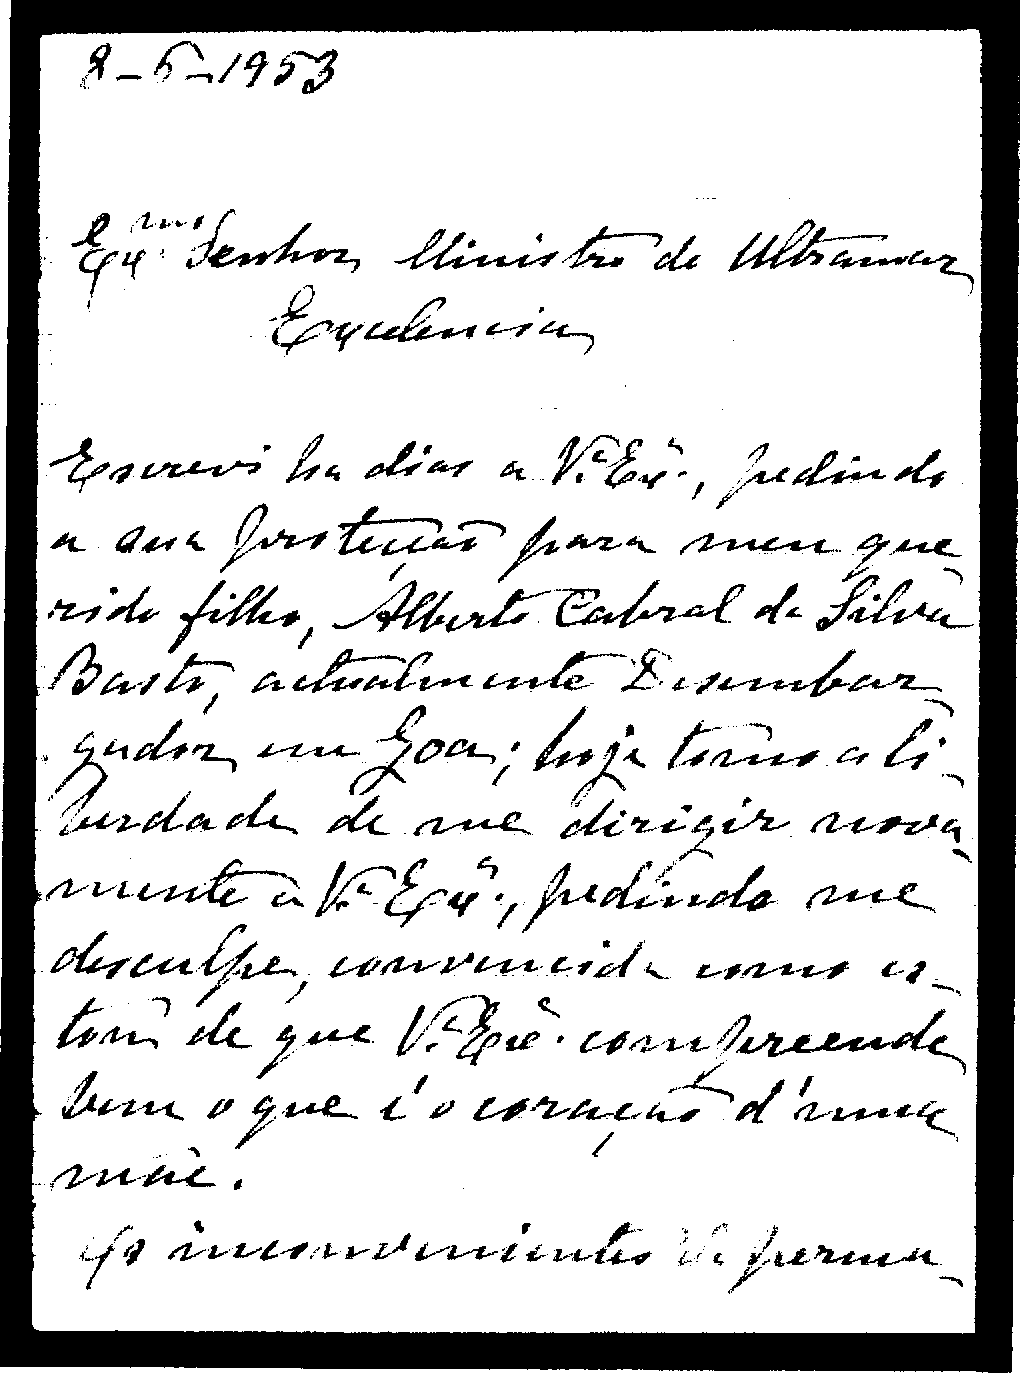 8-6-1953
Exmo. Senhor Ministro do Ultramar
Excelencia
Escrevi ha dias a V.ª Exª., pedindo
a sua protecção para meu que
rido filho, Alberto Cabral da Silva
Basto, actualmente Desembar_
gador em Goa; hoje tomo a li_
berdade de me dirigir nova_
mente a V.ª Exª., pedindo me
desculpe, convencida como es_
tou de que V.ª Exª. compreende
bem o que é o coração d'uma
mãe.
Os inconvenientes da perma_